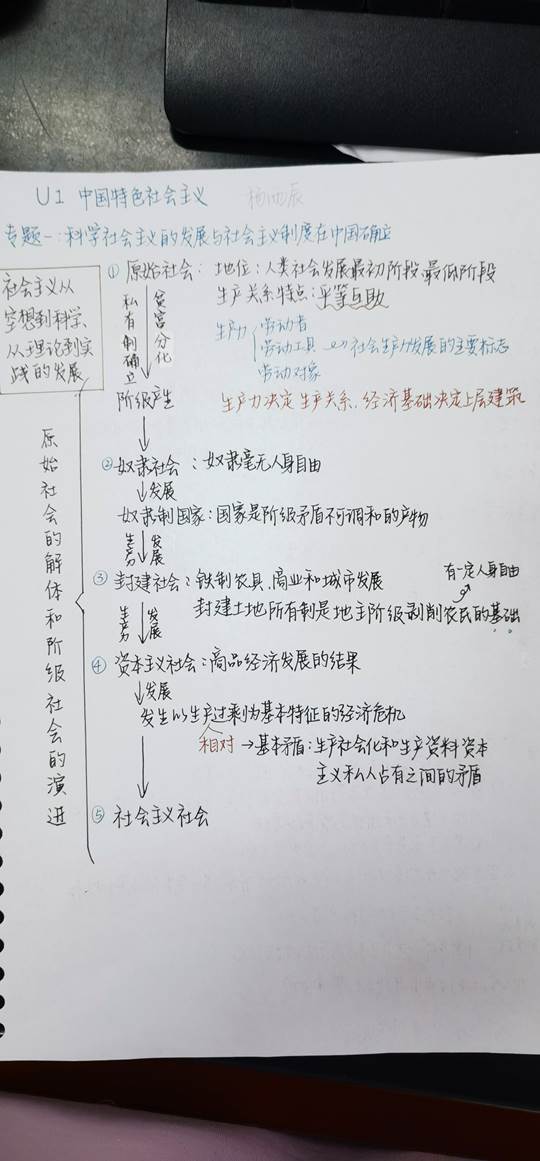 U1 中国特色社会主义
专题一:科学社会主义的发展与社会主义制度在中国确立
社会主义从
空想到科学、
从理论到实
践的发展
原始社会的解体和阶级社会的演进
① 原始社会: 地位:人类社会发展最初阶段、最低阶段
生产关系特点:平等互助
私有制确立
贫富分化
生产力
劳动者
劳动工具 → 社会生产力发展的主要标志
劳动对象
阶级产生
生产力决定生产关系、经济基础决定上层建筑
② 奴隶社会:奴隶毫无人身自由
↓发展
奴隶制国家:国家是阶级矛盾不可调和的产物
生产力↓发展
③ 封建社会:铁制农具、商业和城市发展
有一定人身自由
封建土地所有制是地主阶级剥削农民的基础
生产力↓发展
④ 资本主义社会:商品经济发展的结果
↓发展
发生以生产过剩为基本特征的经济危机
相对 → 基本矛盾:生产社会化和生产资料资本
主义私人占有之间的矛盾
⑤ 社会主义社会